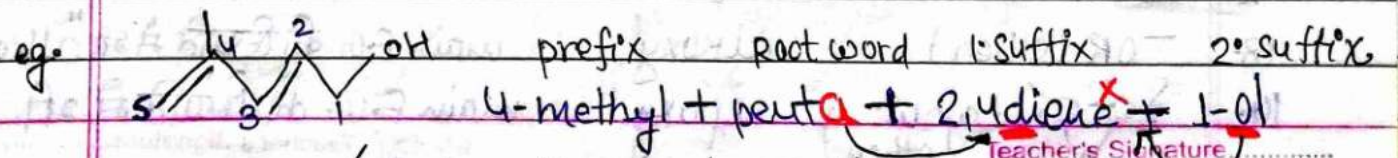 eg. 4 2 OH prefix Root word 1° Suffix 2° suffix
5 3 1 4-methyl + penta + 2,4diene x + 1-ol
Teacher's Signature